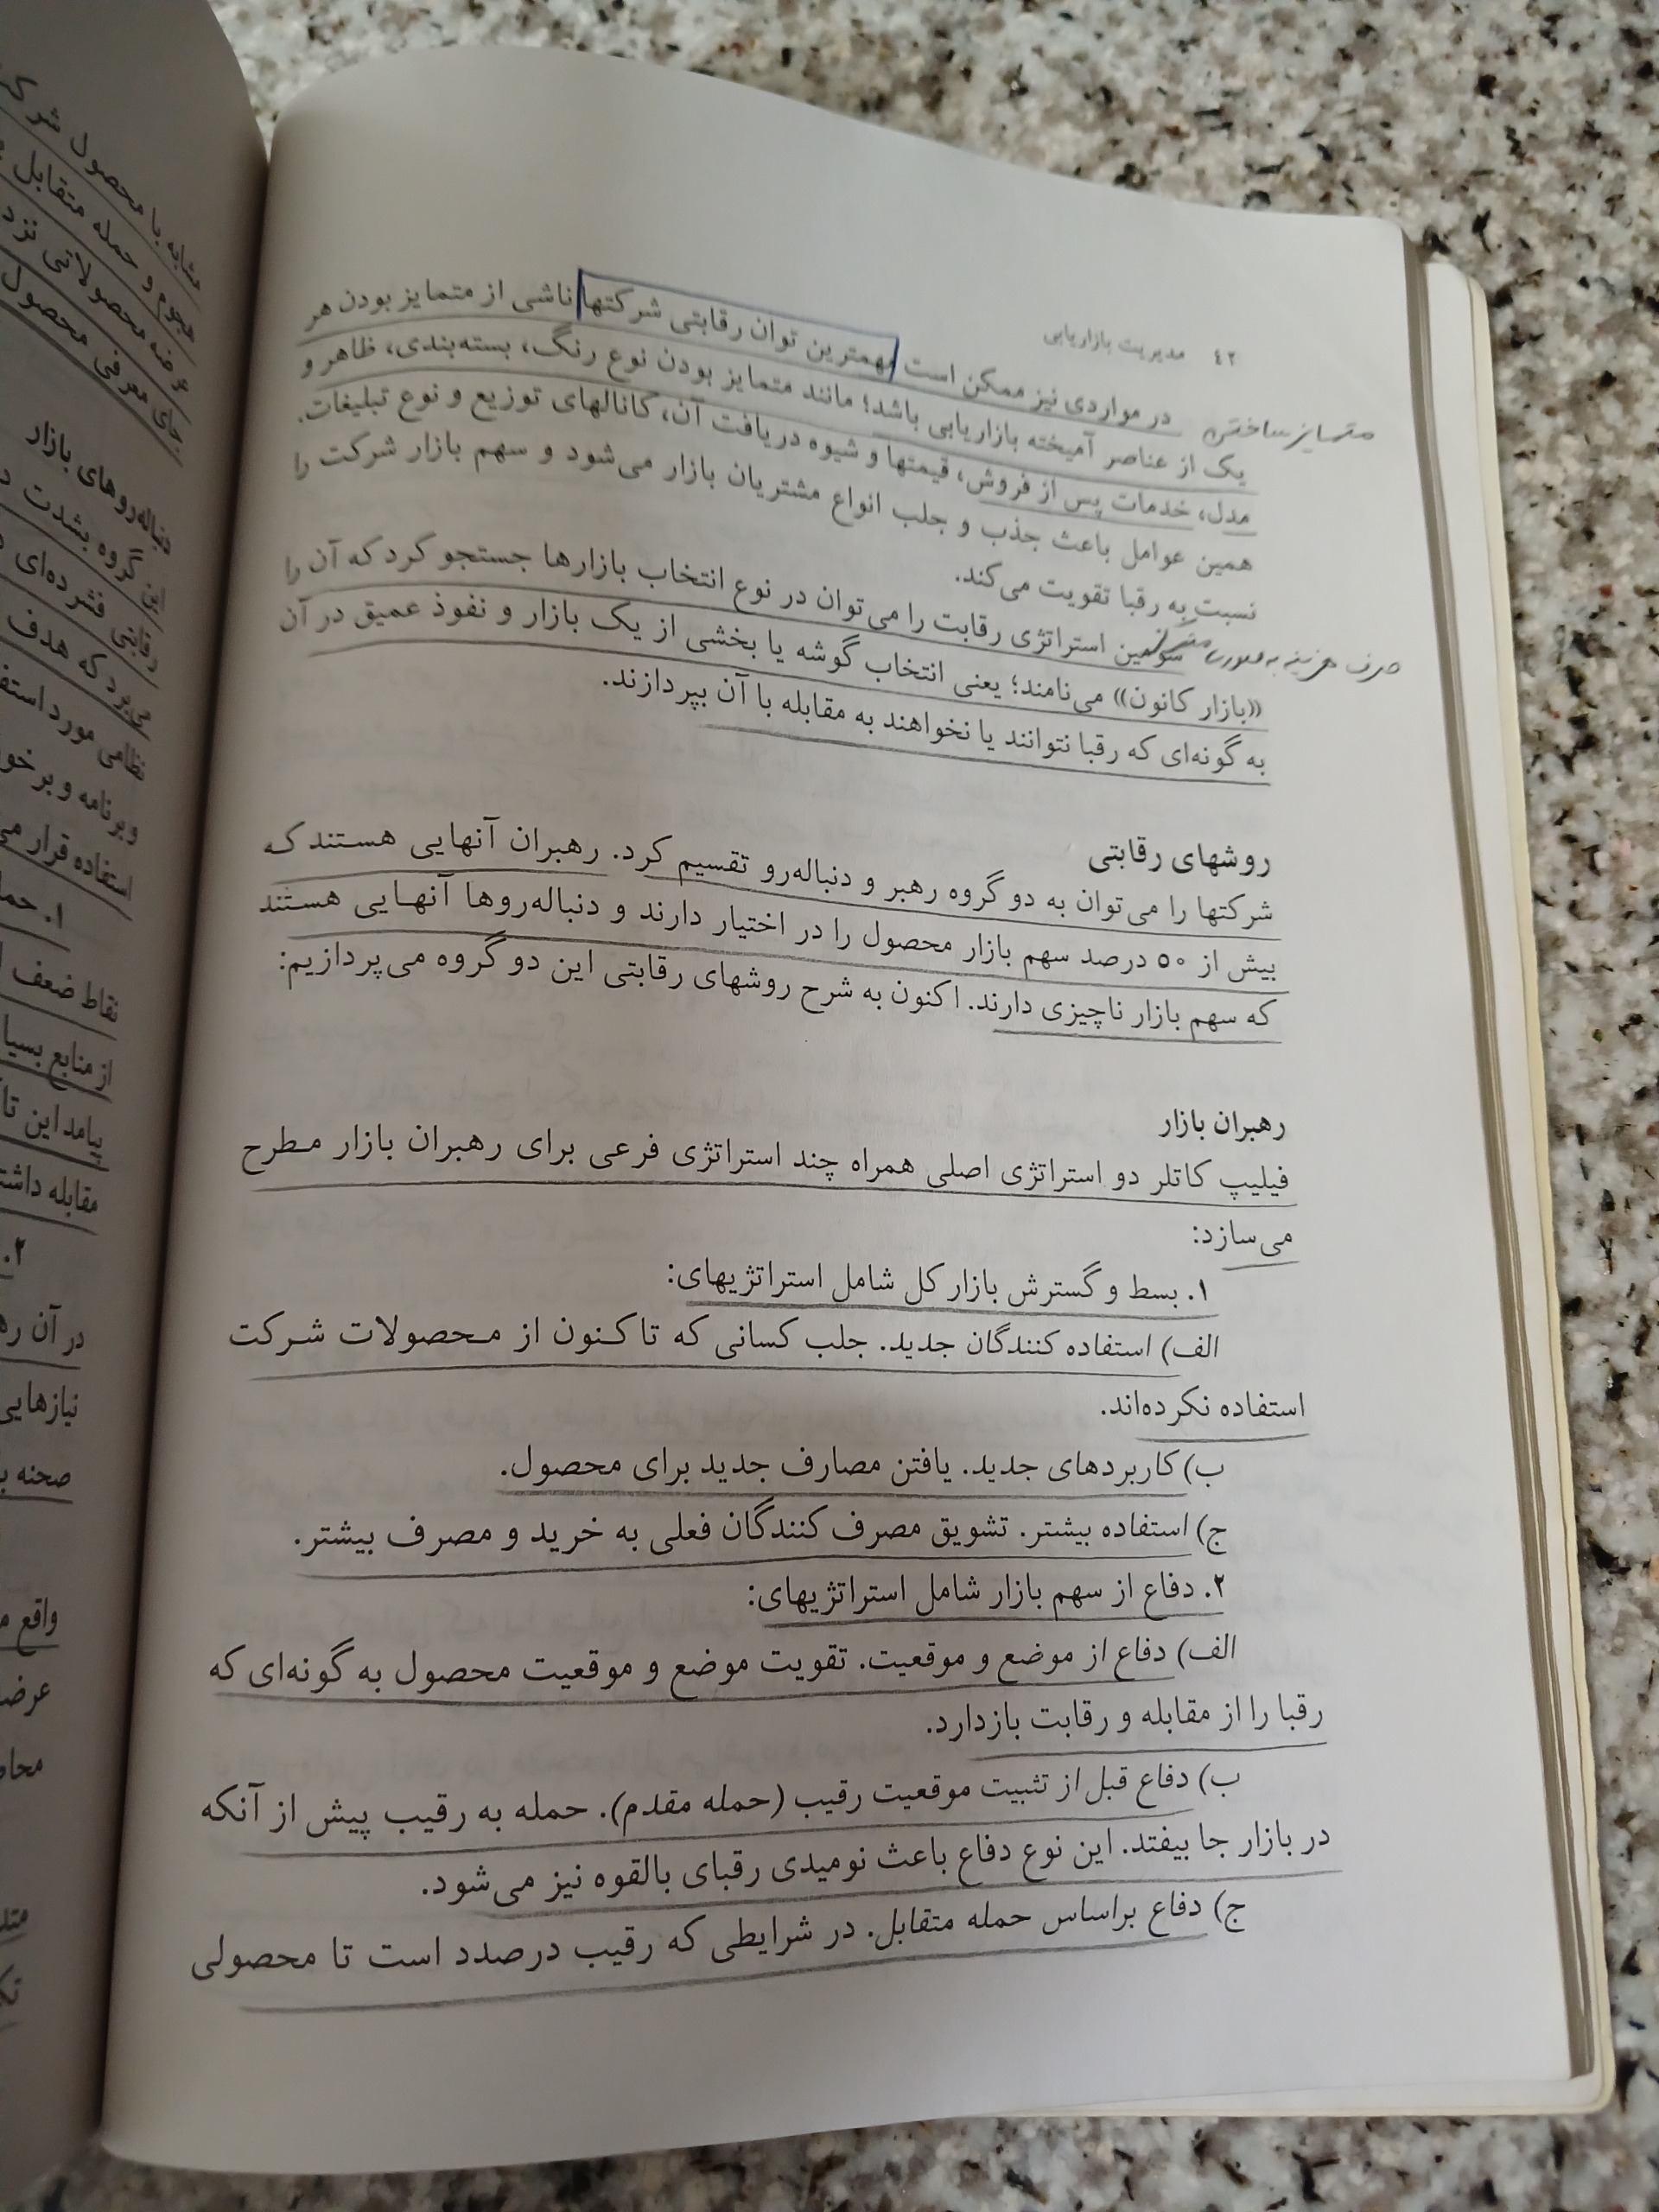 ۴۲ مدیریت بازاریابی
در مواردی نیز ممکن است مهمترین توان رقابتی شرکتها ناشی از متمایز بودن هر
متمایز ساختن
یک از عناصر آمیخته بازاریابی باشد؛ مانند متمایز بودن نوع رنگ، بسته‌بندی، ظاهر و
مدل، خدمات پس از فروش، قیمتها و شیوه دریافت آن، کانالهای توزیع و نوع تبلیغات.
همین عوامل باعث جذب و جلب انواع مشتریان بازار می‌شود و سهم بازار شرکت را
نسبت به رقبا تقویت می‌کند.
سومین استراتژی رقابت را می‌توان در نوع انتخاب بازارها جستجو کرد که آن را
صرف هزینه به صورت
«بازار کانون» می‌نامند؛ یعنی انتخاب گوشه یا بخشی از یک بازار و نفوذ عمیق در آن
به گونه‌ای که رقبا نتوانند یا نخواهند به مقابله با آن بپردازند.
روشهای رقابتی
شرکتها را می‌توان به دو گروه رهبر و دنباله‌رو تقسیم کرد. رهبران آنهایی هستند که
بیش از ۵۰ درصد سهم بازار محصول را در اختیار دارند و دنباله‌روها آنهایی هستند
که سهم بازار ناچیزی دارند. اکنون به شرح روشهای رقابتی این دو گروه می‌پردازیم:
رهبران بازار
فیلیپ کاتلر دو استراتژی اصلی همراه چند استراتژی فرعی برای رهبران بازار مطرح
می‌سازد:
۱. بسط و گسترش بازار کل شامل استراتژیهای:
الف) استفاده کنندگان جدید. جلب کسانی که تاکنون از محصولات شرکت
استفاده نکرده‌اند.
ب) کاربردهای جدید. یافتن مصارف جدید برای محصول.
ج) استفاده بیشتر. تشویق مصرف کنندگان فعلی به خرید و مصرف بیشتر.
۲. دفاع از سهم بازار شامل استراتژیهای:
الف) دفاع از موضع و موقعیت. تقویت موضع و موقعیت محصول به گونه‌ای که
رقبا را از مقابله و رقابت بازدارد.
ب) دفاع قبل از تثبیت موقعیت رقیب (حمله مقدم). حمله به رقیب پیش از آنکه
در بازار جا بیفتد. این نوع دفاع باعث نومیدی رقبای بالقوه نیز می‌شود.
ج) دفاع براساس حمله متقابل. در شرایطی که رقیب درصدد است تا محصولی
مشابه با محصول
هجوم و حمله متقابل
عرضه محصولاتی نزد
جای معرفی محصول
دنباله‌روهای بازار
این گروه بشدت
رقابتی فشرده‌ای
می‌برد که هدف
نظامی مورد
و برنامه و
استفاده قرار
۱.
نقاط ضعف
از منابع
پیامد این
مقابله
۲.
در آن
نیازهایی
صحنه
واقع